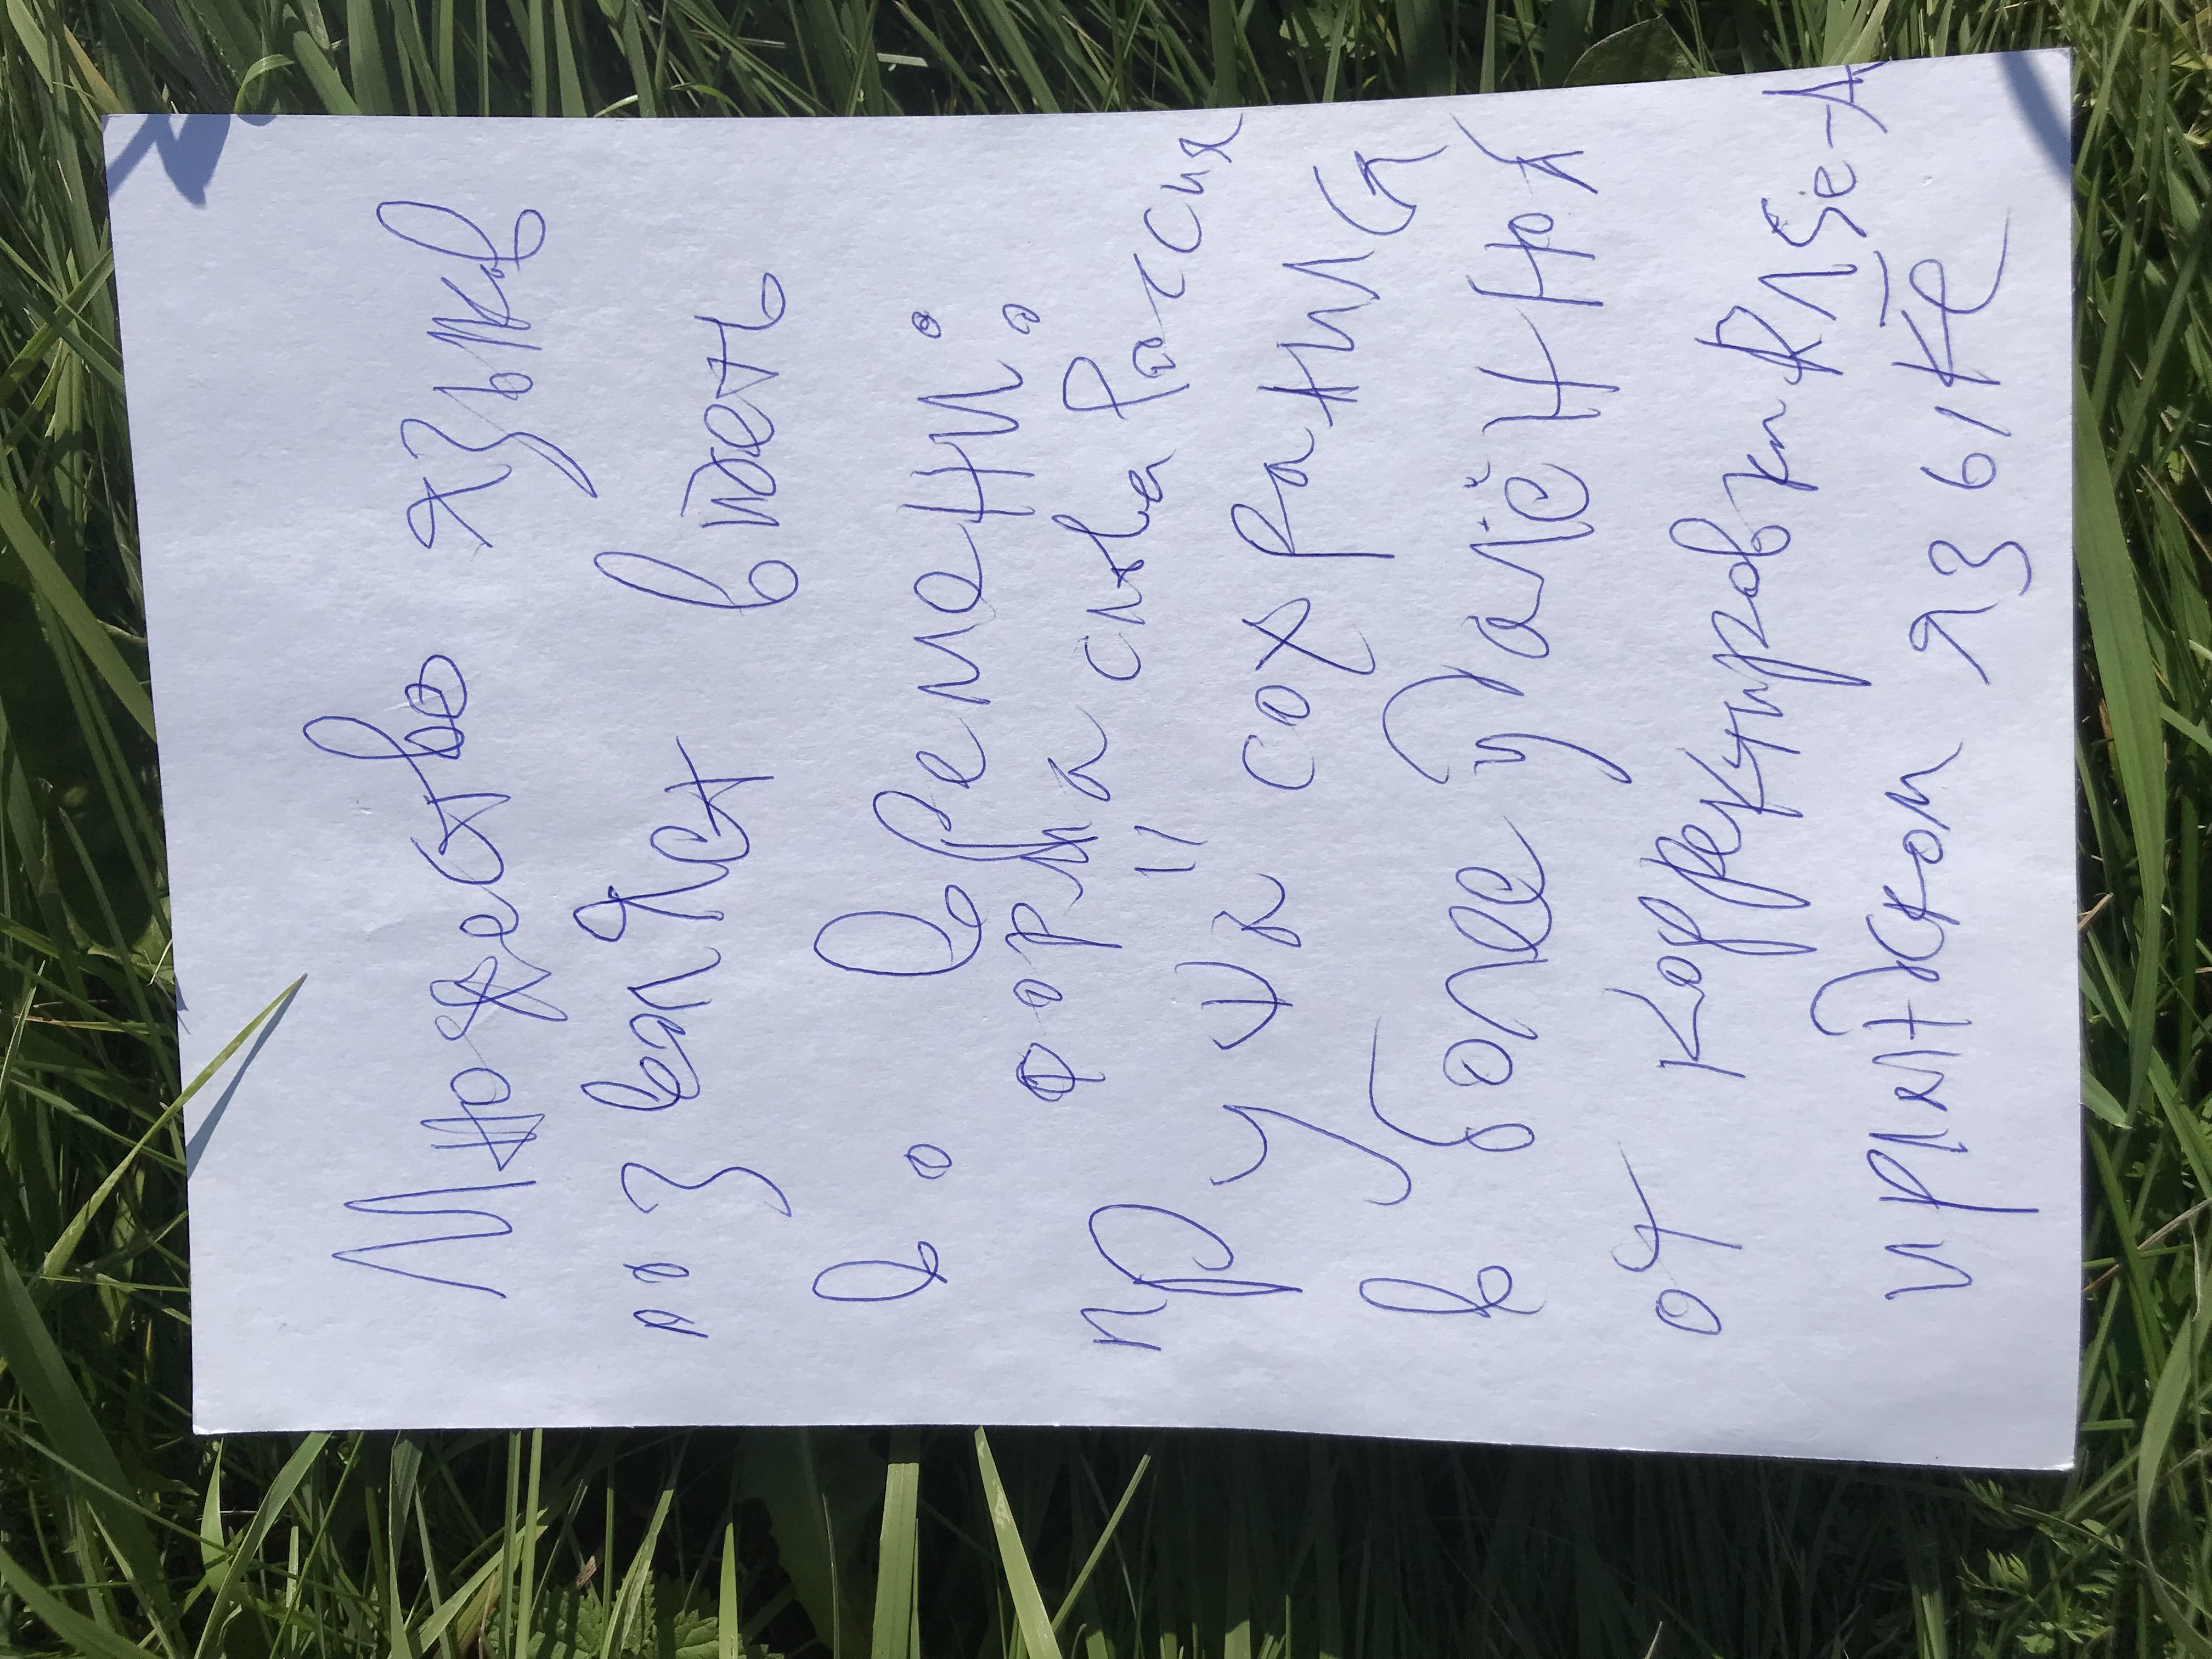 Множество языков
позволяет видеть
во времени:
форма слова Россия
"Руша" сохранился
в более удалённой
от корректировки
ирландском языке